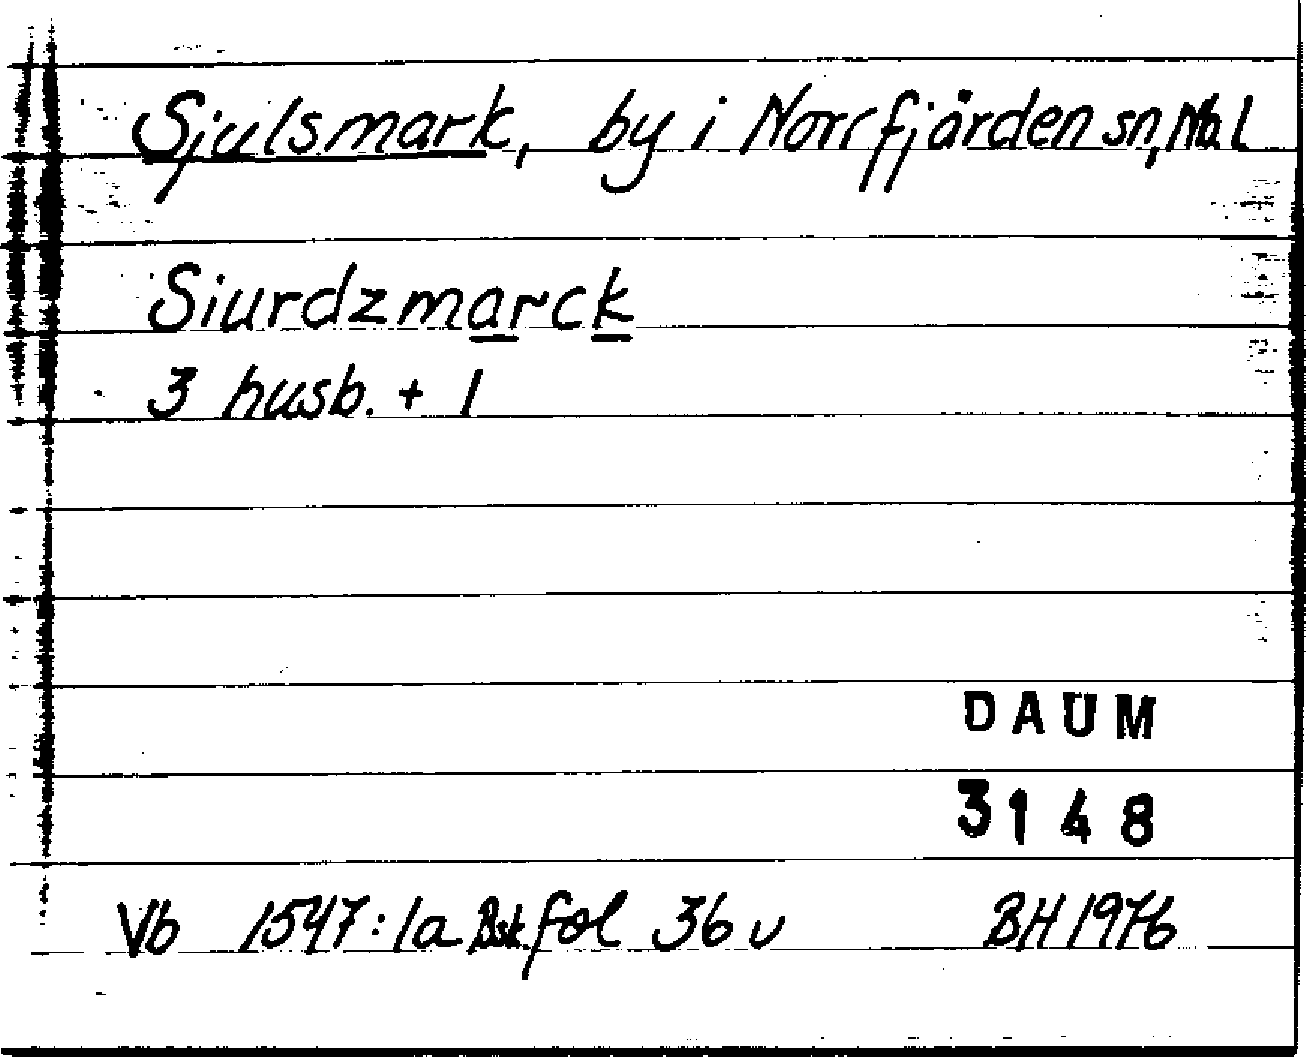 Sjulsmark, by i Norrfjärden sn, Nb. L
Siurdzmarck
3 husb. + 1
DAUM
3148
Vb 1547:1a Bsk. fol 36 v
BH 1976